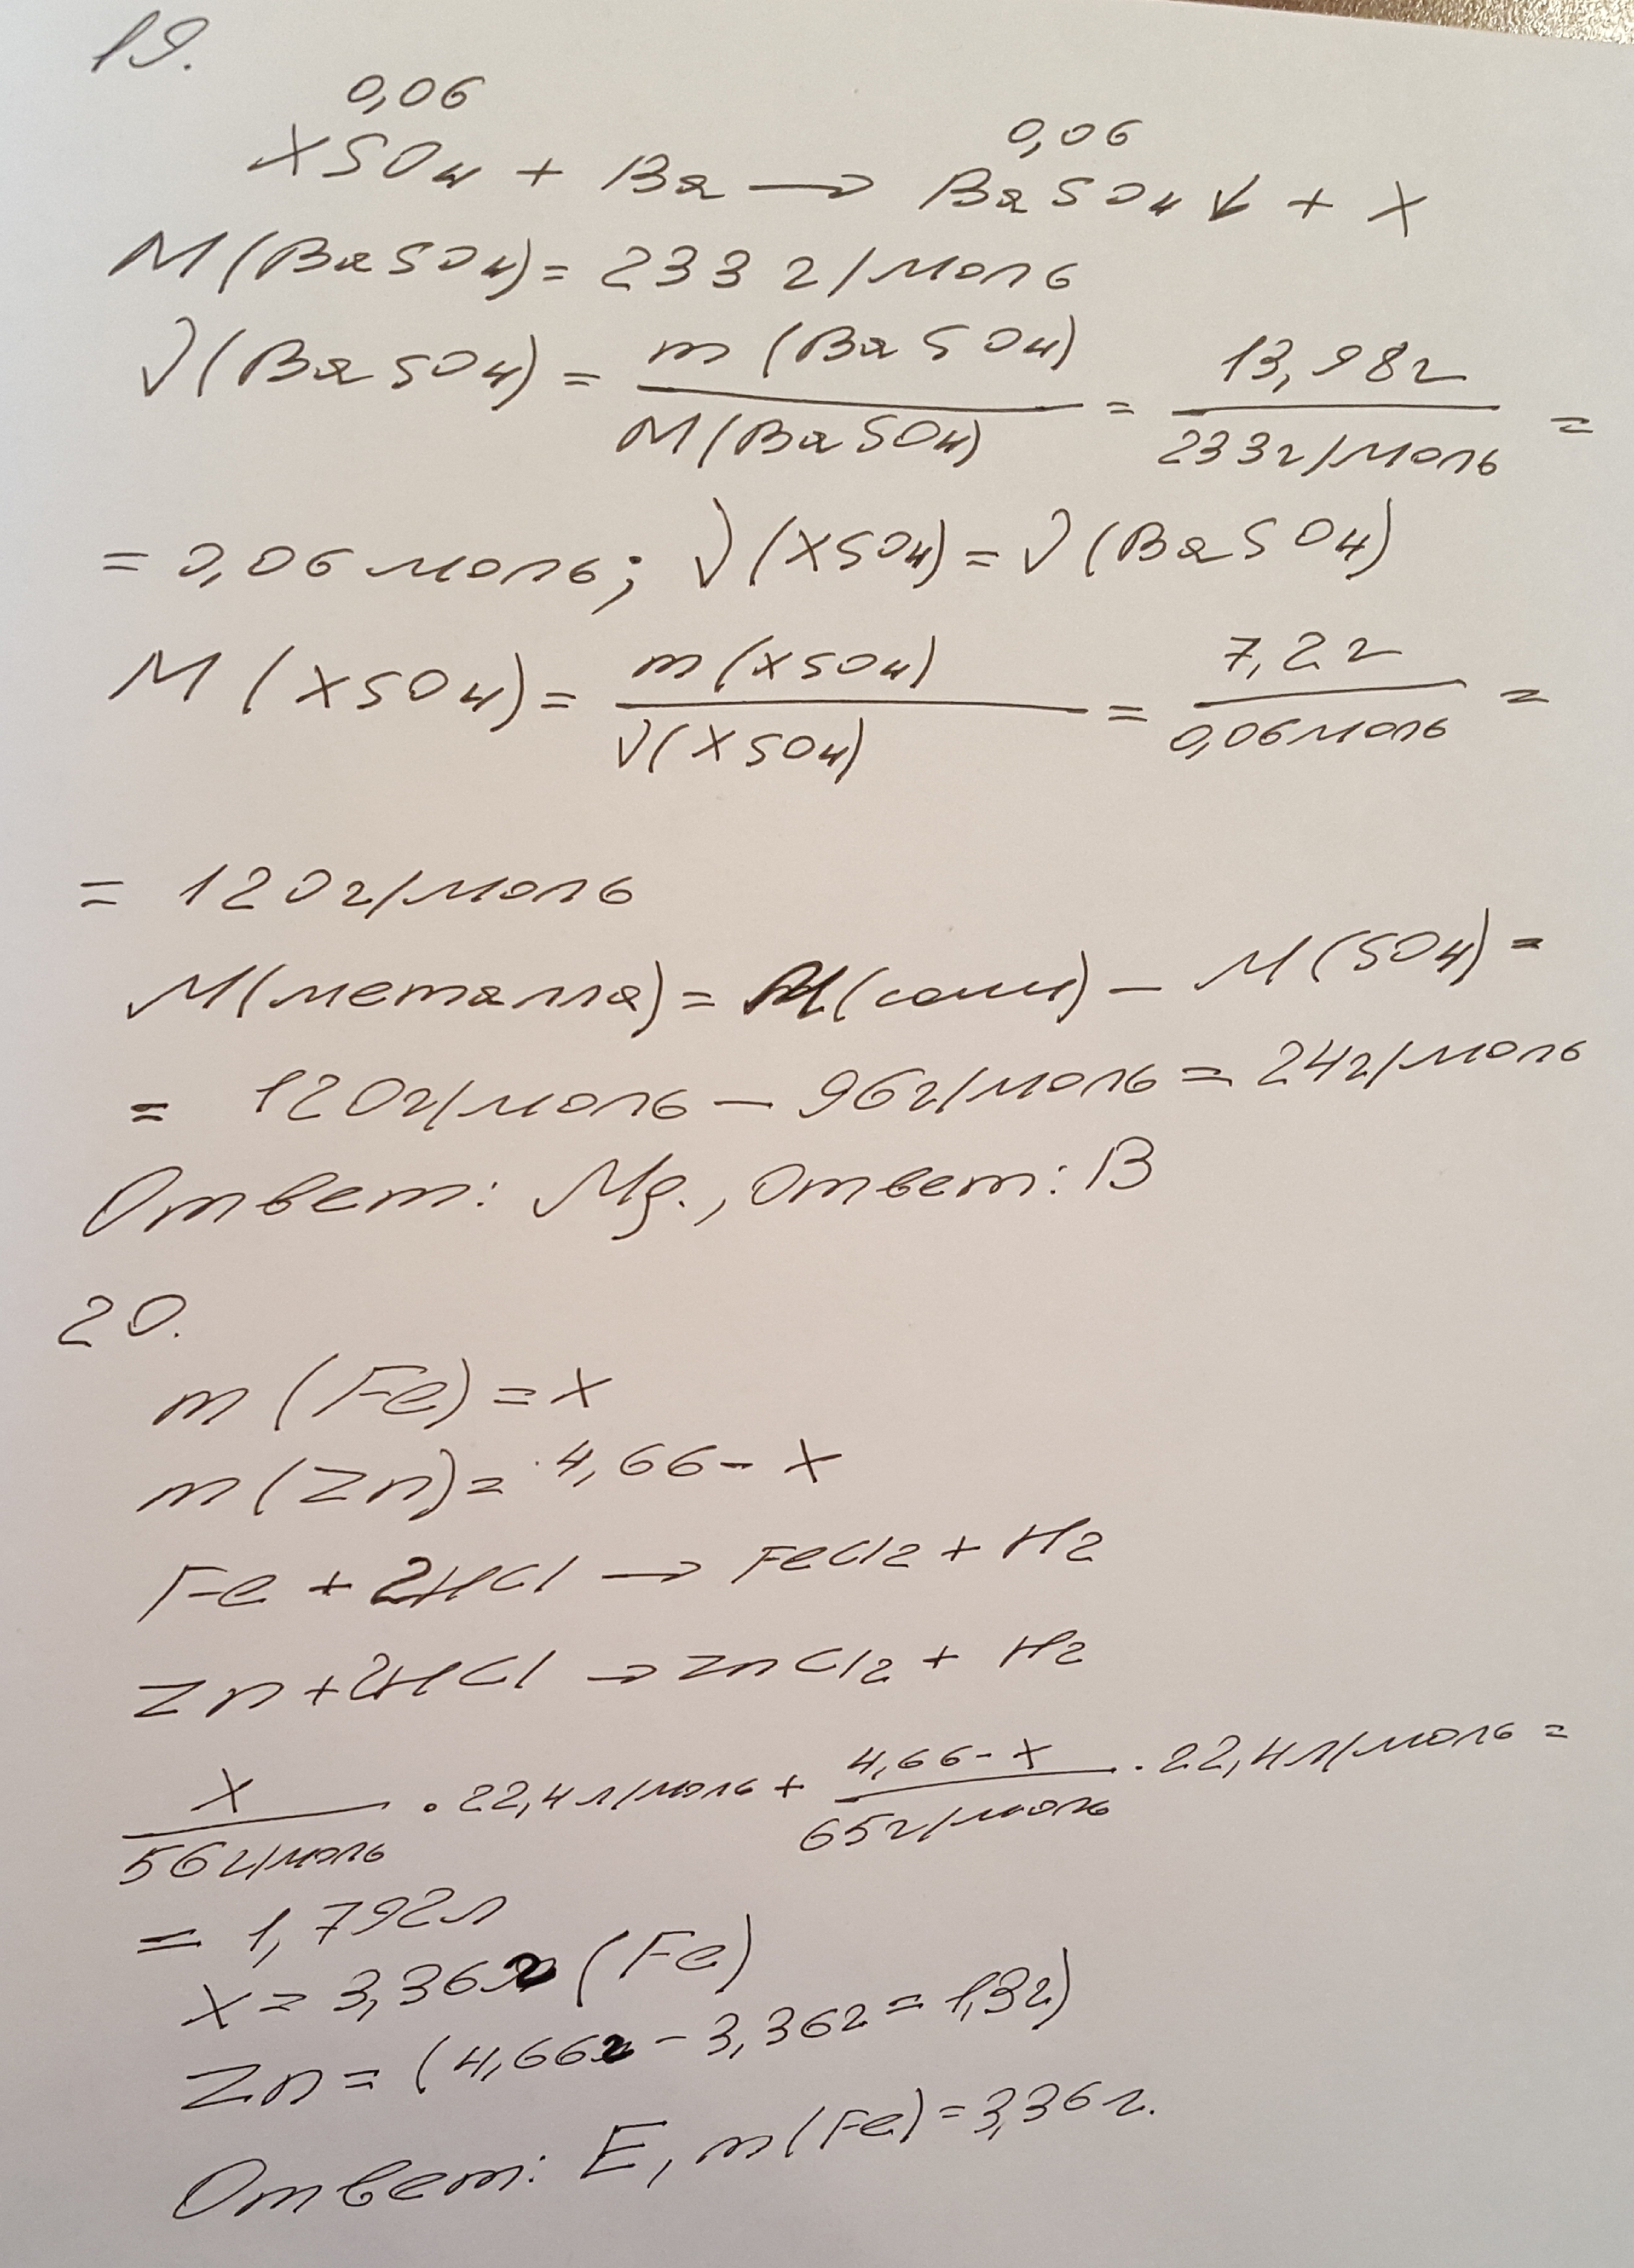 19.
0,06 0,06
XSO₄ + Ba → BaSO₄↓ + X
M(BaSO₄) = 233 г/моль
ν(BaSO₄) = m(BaSO₄) / M(BaSO₄) = 13,98г / 233г/моль =
= 0,06 моль; ν(XSO₄) = ν(BaSO₄)
M(XSO₄) = m(XSO₄) / ν(XSO₄) = 7,2г / 0,06моль =
= 120г/моль
M(металла) = M(соли) – M(SO₄) =
= 120г/моль – 96г/моль = 24г/моль
Ответ: Mg., Ответ: B
20.
m(Fe) = x
m(Zn) = 4,66 - x
Fe + 2HCl → FeCl₂ + H₂
Zn + 2HCl → ZnCl₂ + H₂
x / 56г/моль · 22,4л/моль + 4,66-x / 65г/моль · 22,4л/моль =
= 1,792л
x = 3,36г (Fe)
Zn = (4,66г – 3,36г = 1,3г)
Ответ: E, m(Fe) = 3,36г.